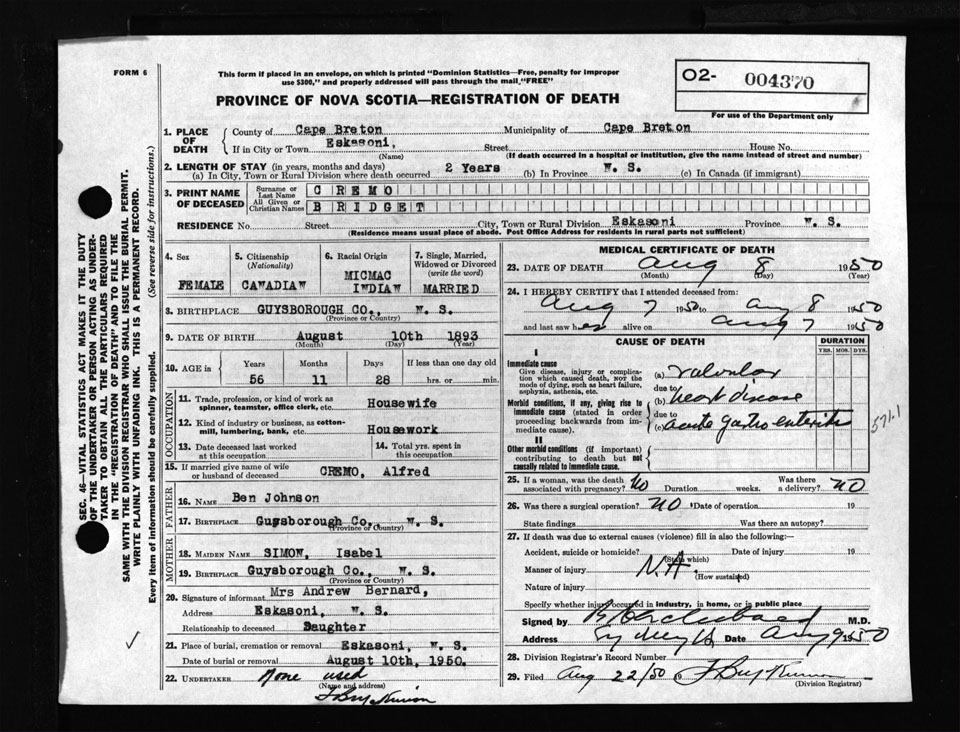 FORM 6
This form if placed in an envelope, on which is printed "Dominion Statistics—Free, penalty for improper
use $300," and properly addressed will pass through the mail "FREE"
PROVINCE OF NOVA SCOTIA—REGISTRATION OF DEATH
O2- 004370
For use of the Department only
SEC. 46—VITAL STATISTICS ACT MAKES IT THE DUTY
OF THE UNDERTAKER OR PERSON ACTING AS UNDER-
TAKER TO OBTAIN ALL THE PARTICULARS REQUIRED
IN THE "REGISTRATION OF DEATH" AND TO FILE THE
SAME WITH THE DIVISION REGISTRAR WHO SHALL ISSUE THE BURIAL PERMIT.
WRITE PLAINLY WITH UNFADING INK. THIS IS A PERMANENT RECORD.
Every item of information should be carefully supplied. (See reverse side for instructions.)
1. PLACE OF DEATH
County of Cape Breton Municipality of Cape Breton
If in City or Town Eskasoni, Street House No.
(Name) (If death occurred in a hospital or institution, give the name instead of street and number)
2. LENGTH OF STAY (in years, months and days)
(a) In City, Town or Rural Division where death occurred 2 Years (b) In Province W. S. (c) In Canada (if immigrant)
3. PRINT NAME OF DECEASED
Surname or Last Name CREMO
All Given or Christian Names BRIDGET
RESIDENCE No. Street City, Town or Rural Division Eskasoni Province W. S.
(Residence means usual place of abode. Post Office Address for residents in rural parts not sufficient)
4. Sex 5. Citizenship (Nationality) 6. Racial Origin 7. Single, Married, Widowed or Divorced (write the word)
FEMALE CAWADIAW MICMAC IWDIAW MARRIED
8. BIRTHPLACE GUYSBOROUGH CO., W. S.
(Province or Country)
9. DATE OF BIRTH August 10th 1893
(Month) (Day) (Year)
10. AGE in Years Months Days If less than one day old
56 11 28 hrs. or min.
OCCUPATION
11. Trade, profession, or kind of work as
spinner, teamster, office clerk, etc. Housewife
12. Kind of industry or business, as cotton-
mill, lumbering, bank, etc. Housework
13. Date deceased last worked
at this occupation
14. Total yrs. spent in
this occupation
15. If married give name of wife
or husband of deceased CREMO, Alfred
FATHER
16. NAME Ben Johnson
17. BIRTHPLACE Guysborough Co., W. S.
(Province or Country)
MOTHER
18. MAIDEN NAME SIMOW, Isabel
19. BIRTHPLACE Guysborough Co., W. S.
(Province or Country)
20. Signature of informant Mrs Andrew Bernard,
Address Eskasoni, W. S.
Relationship to deceased Daughter
21. Place of burial, cremation or removal Eskasoni, W. S.
Date of burial or removal August 10th, 1950.
22. UNDERTAKER None used
(Name and address)
MEDICAL CERTIFICATE OF DEATH
23. DATE OF DEATH Aug 8 1950
(Month) (Day) (Year)
24. I HEREBY CERTIFY that I attended deceased from:
Aug 7 1950 to Aug 8 1950
and last saw her alive on Aug 7 1950
CAUSE OF DEATH DURATION
YRS. MOS. DYS.
I
Immediate cause
Give disease, injury or complica-
tion which caused death, NOT the
mode of dying, such as heart failure,
asphyxia, asthenia, etc.
(a) Valvular
due to
Morbid conditions, if any, giving rise to
immediate cause (stated in order
proceeding backwards from im-
mediate cause).
(b) heart disease
due to
(c) acute gastro enteritis
571.1
II
Other morbid conditions (if important)
contributing to death but not
causally related to immediate cause.
25. If a woman, was the death
associated with pregnancy? No Duration weeks. Was there
a delivery? NO
26. Was there a surgical operation? NO Date of operation 19
State findings Was there an autopsy?
27. If death was due to external causes (violence) fill in also the following:—
Accident, suicide or homicide? Date of injury 19
(State which)
Manner of injury N.A.
(How sustained)
Nature of injury
Specify whether injury occurred in industry, in home, or in public place
Signed by M.D.
Address Date Aug 9 1950
28. Division Registrar's Record Number
29. Filed Aug 22/50 19
(Division Registrar)